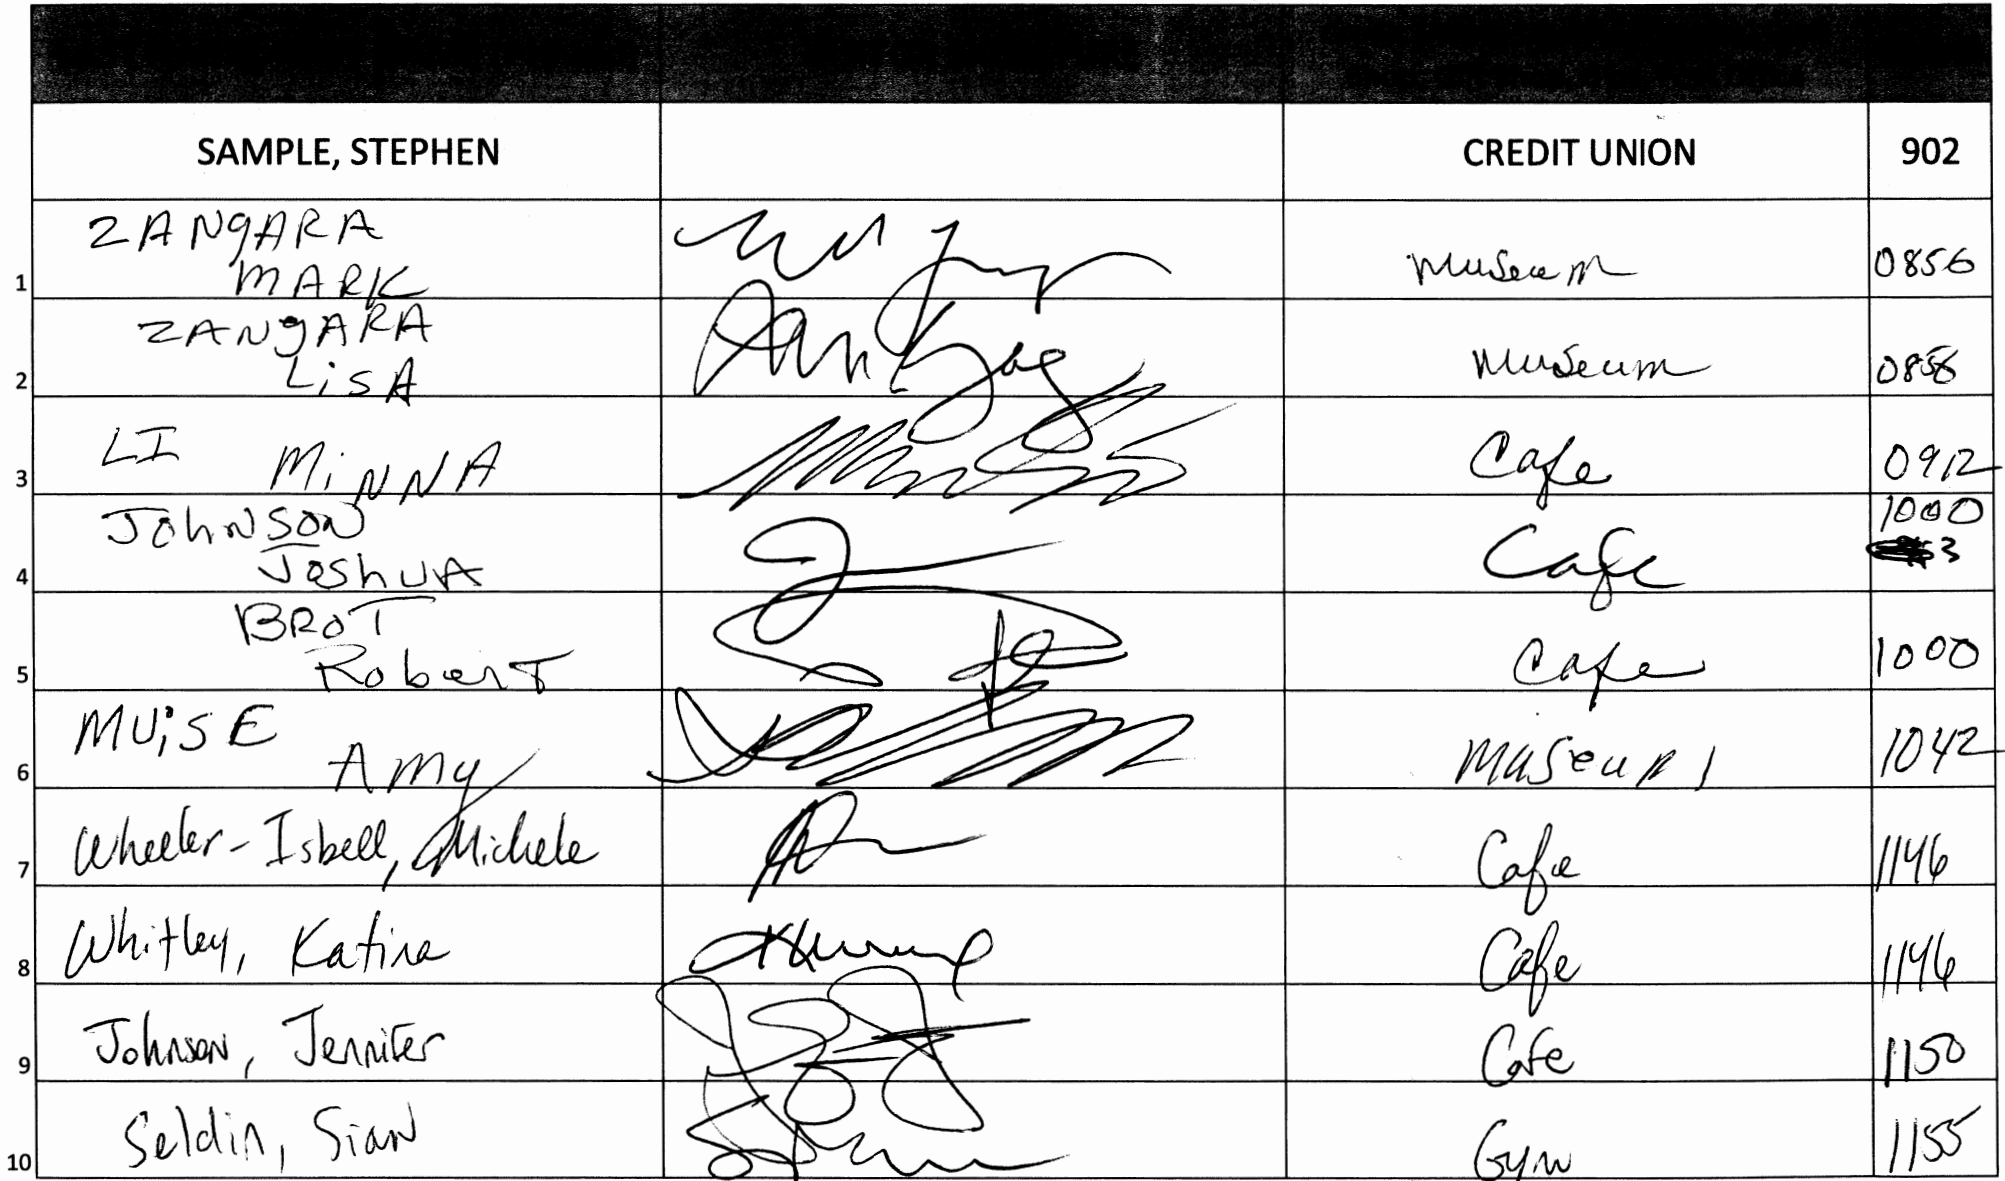 SAMPLE, STEPHEN CREDIT UNION 902
ZANGARA
MARK Museum 0856
1
ZANGARA
LiSA Museum
2
LI MiNNA Cafe 0912
3
JOHNSON 1000
JOSHUA Cafe 3
4
BROT
Robert Cafe 1000
5
MUiSE
Amy Museum 1042
6
Wheeler-Isbell, Michele Cafe 1146
7
Whitley, Katina Cafe 1146
8
Johnson, Jennifer Cafe 1150
9
Seldin, Sian Gym 1155
10